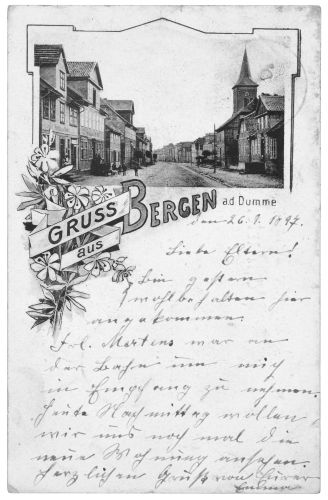 GRUSS
aus
BERGEN a.d Dumme
den 26.1.1897.
Liebe Eltern!
Bin gestern
wohlbehalten hier
angekommen
Frl. Mertens war an
der Bahn um mich
in Empfang zu nehmen.
Heute Nachmittag wollen
wir uns noch mal die
neue Wohnung ansehen.
Herzlichen Gruß von Eurer
Emma